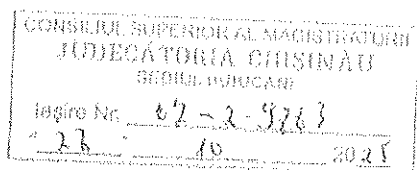 CONSILIUL SUPERIOR AL MAGISTRATURII
JUDECĂTORIA CHIŞINĂU
SEDIUL BUIUCANI
Ieşire Nr. 02-2-9263
10 20